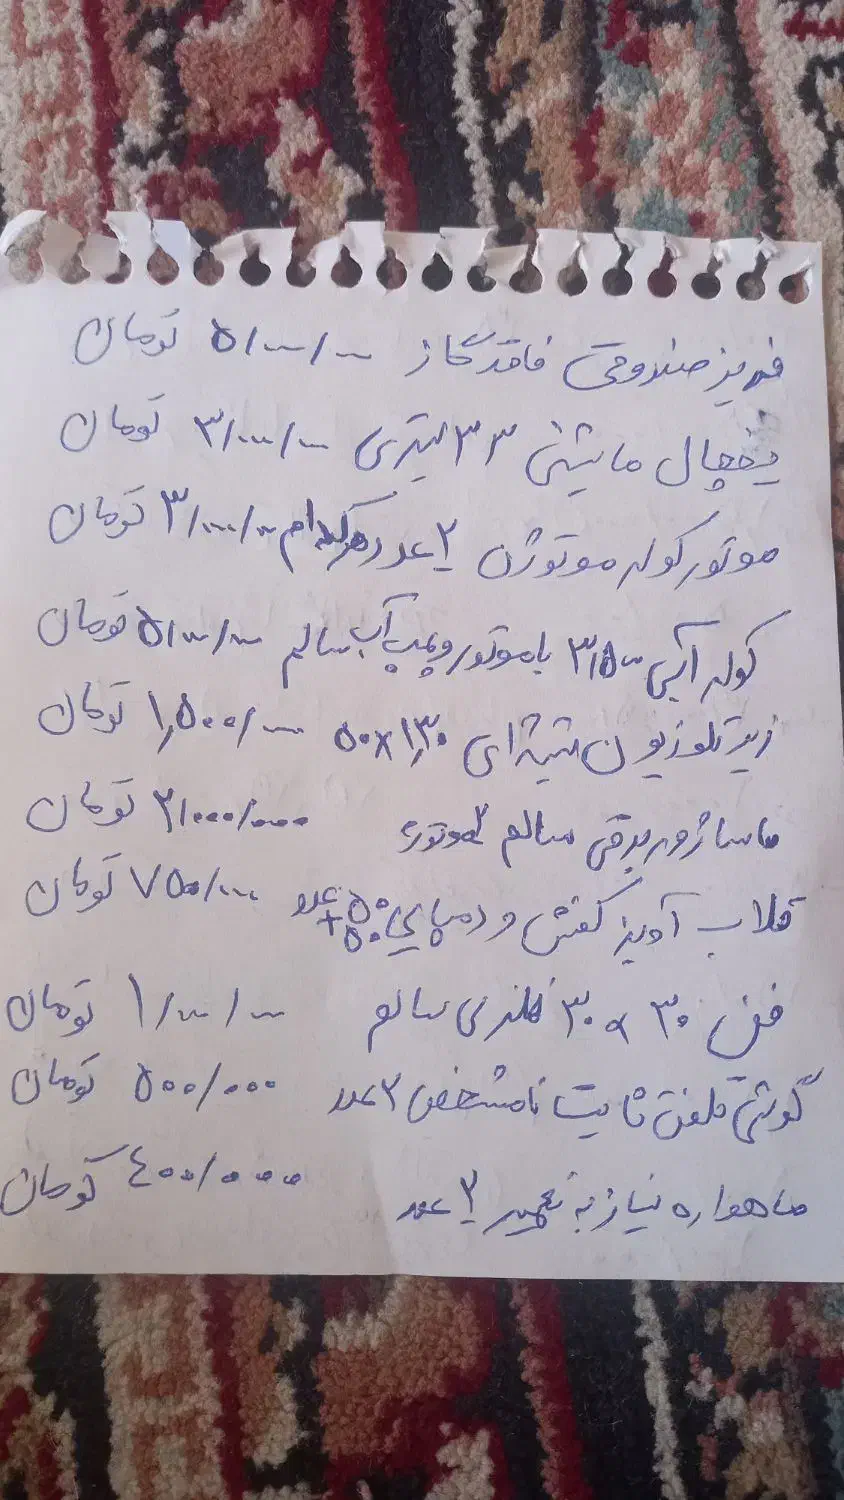 فریزر صندوقی فاقد گاز ۵/۰۰۰/۰۰۰ تومان
یخچال ماشینی ۳۳ لیتری ۳/۰۰۰/۰۰۰ تومان
موتور کولر موتوژن ۲ عدد هرکدام ۳/۰۰۰/۰۰۰ تومان
کولر آبی ۳/۵۰۰ با موتور و پمپ آب سالم ۵/۰۰۰/۰۰۰ تومان
زیر تلوزیون شیشه‌ای ۱٫۳۰×۵۰ ۱٫۵۰۰/۰۰۰ تومان
ماساژور برقی سالم ۲ موتوره ۲/۰۰۰/۰۰۰ تومان
قلاب آویز کفش و دمپایی ۵۰+۵۰ عدد ۷۵۰/۰۰۰ تومان
فن ۳۰×۳۰ فلزی سالم ۱/۰۰۰/۰۰۰ تومان
گوشی تلفن ثابت نامشخص ۳ عدد ۵۰۰/۰۰۰ تومان
ماهواره نیاز به تعمیر ۲ عدد ۴۰۰/۰۰۰ تومان